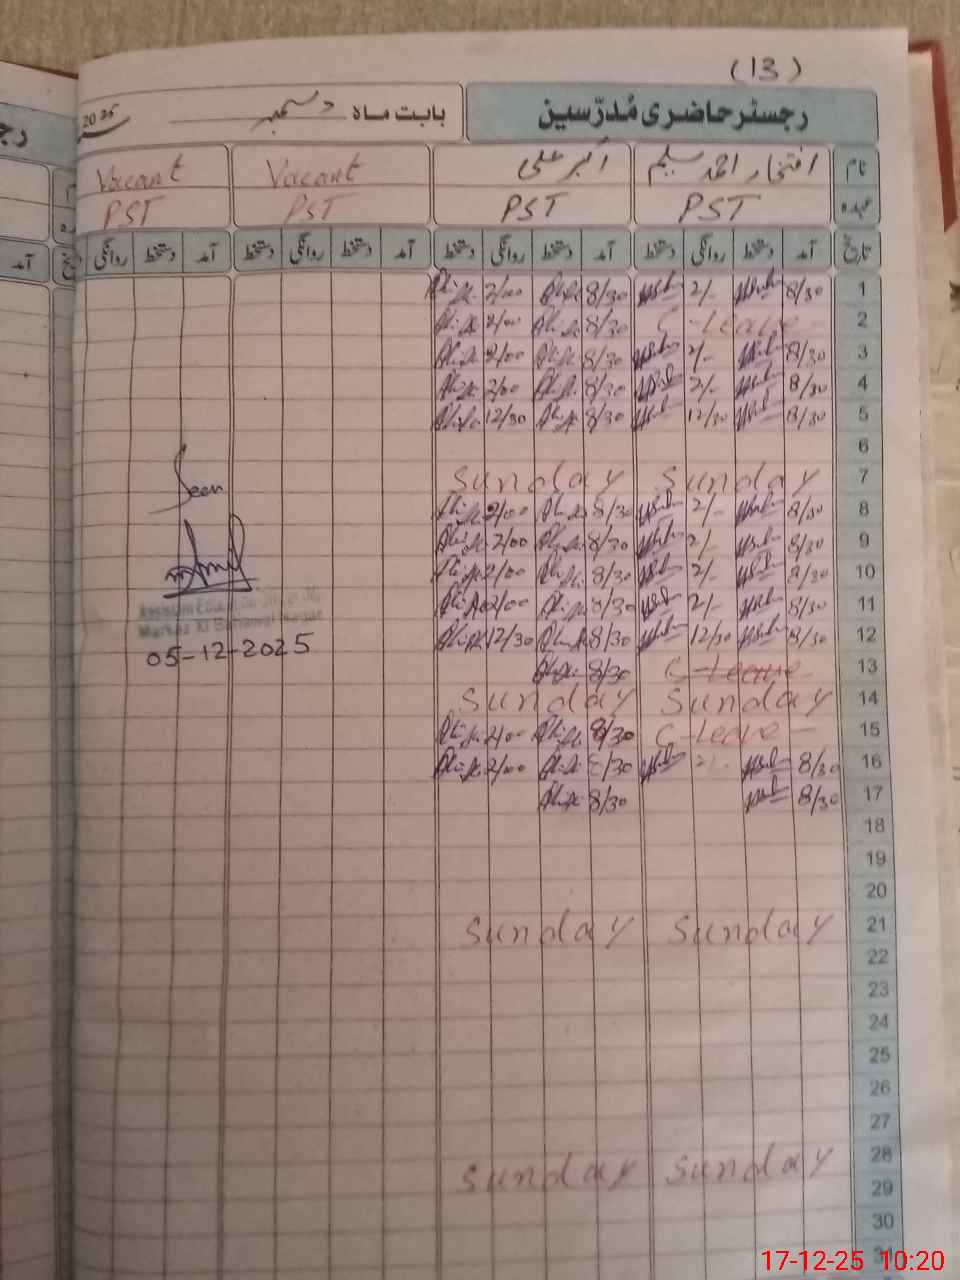 (13)
رجسٹر حاضری مُدرّسین بابت ماہ دسمبر 2025
نام افتخار احمد سلیم اکبر علی Vacant Vacant
عہدہ PST PST PST PST
تاریخ آمد دستخط روانگی دستخط آمد دستخط روانگی دستخط آمد دستخط روانگی دستخط آمد دستخط روانگی
1 8/30 2/- 8/30 2/00
2 C-Leave - 8/30 2/00
3 8/30 2/- 8/30 2/00
4 8/30 2/- 8/30 2/00
5 8/30 12/30 8/30 12/30
6
7 Sunday Sunday
Seen
8 8/30 2/- 8/30 2/00
9 8/30 2/- 8/30 2/00
10 8/30 2/- 8/30 2/00
11 8/30 2/- 8/30 2/00
12 8/30 12/30 8/30 12/30
05-12-2025
13 C-Leave 8/30
14 Sunday Sunday
15 C-Leave - 8/30 2/00
16 8/30 2/- 8/30 2/00
17 8/30 8/30
18
19
20
21 Sunday Sunday
22
23
24
25
26
27
28 Sunday Sunday
29
30
31
17-12-25 10:20